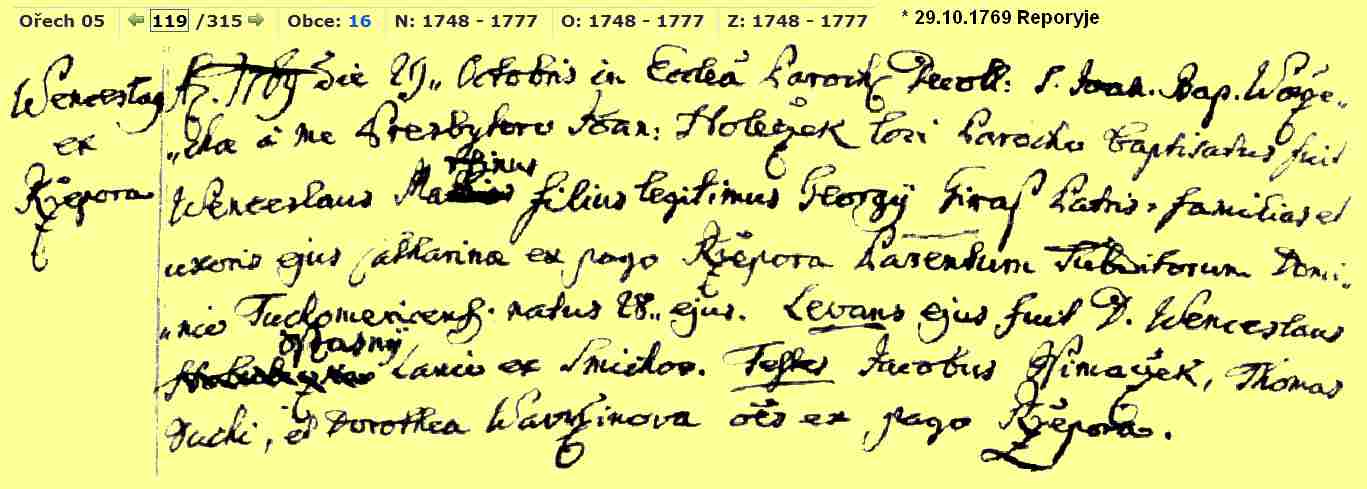 Ořech 05 119 /315 Obce: 16 N: 1748 - 1777 O: 1748 - 1777 Z: 1748 - 1777 * 29.10.1769 Reporyje
Wenceslaus
ex
Rzepora
A. 1769 Die 29„ Octobris in Eccleâ Paroch Decoll: S. Joan. Bap. Worže„
„cha â me Presbytero Joan: Holeczek loci Parocho baptisatus fuit
Wenceslaus Ma thinus filius legitimus Georgÿ Giras Patris familias et
uxoris ejus Catharinæ ex pago Rzepora Parentum Subditorum Domi„
„nio Tuchomericens. natus 28„ ejus. Levans ejus fuit D. Wenceslaus
Stiasný Lanio ex Smichov. Testes Jacobus Thomas
Suchi, et Dorothea Wavrzinova oes ex pago Rzepora.